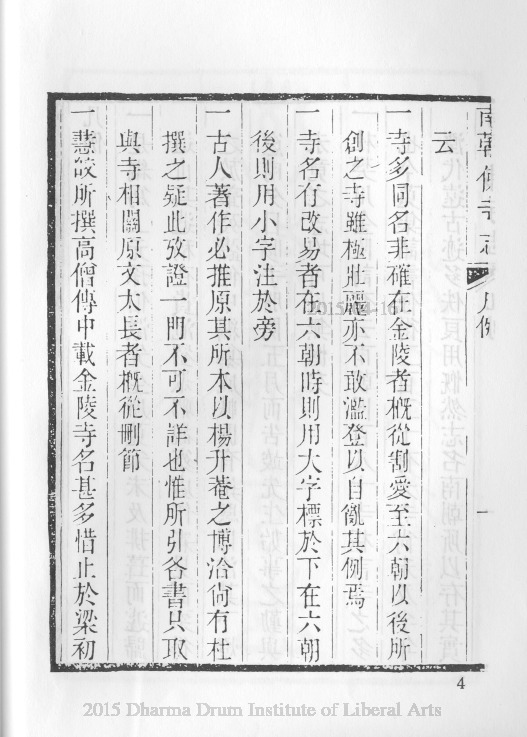 南朝佛寺志 凡例 一
云
一寺多同名非確在金陵者概從割愛至六朝以後所
創之寺雖極壯麗亦不敢濫登以自亂其例焉
一寺名有改易者在六朝時則用大字標於下在六朝
後則用小字注於旁
一古人著作必推原其所本以楊升菴之博洽尙有杜
撰之疑此攷證一門不可不詳也惟所引各書只取
與寺相關原文太長者概從刪節
一慧皎所撰高僧傳中載金陵寺名甚多惜止於梁初
4
2015 Dharma Drum Institute of Liberal Arts